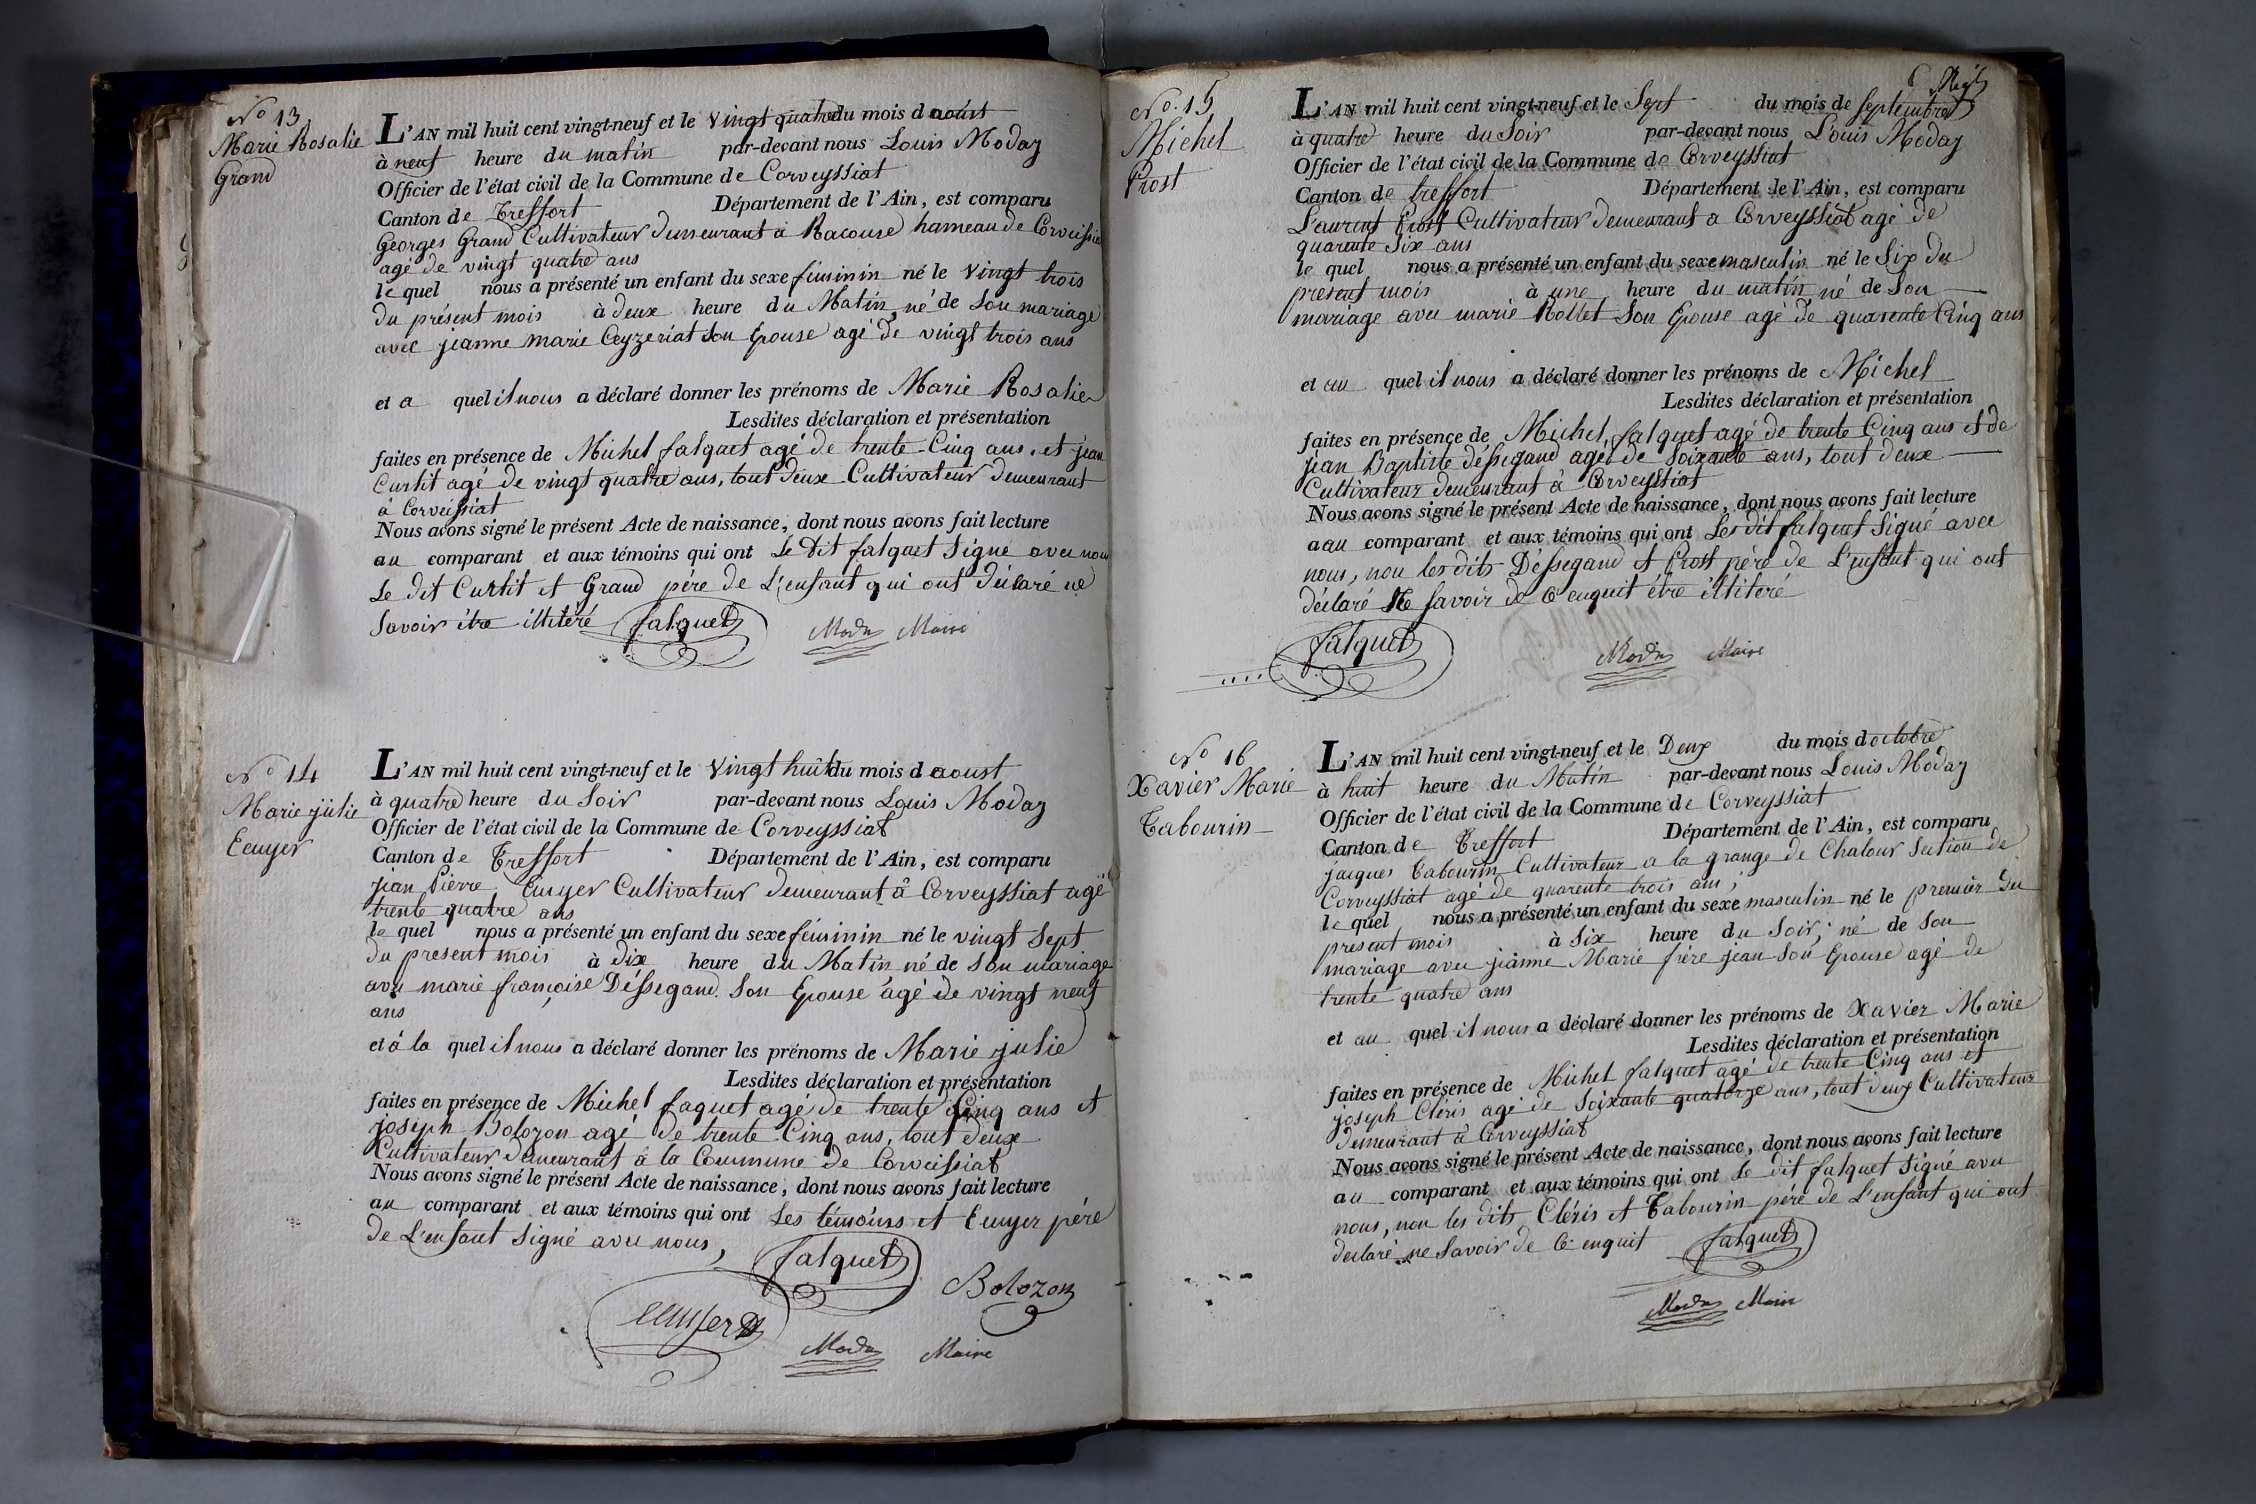 No 13
Marie Rosalie
Grand
L'AN mil huit cent vingt-neuf et le vingt quatre du mois d aoust
à neuf heure du matin par-devant nous Louis Moday
Officier de l'état civil de la Commune de Corveyssiat
Canton de Treffort Département de l'Ain, est comparu
Georges Grand Cultivateur demeurant à Racouse hameau de Corveissia
agé de vingt quatre ans
le quel nous a présenté un enfant du sexe féminin né le vingt trois
du présent mois à deux heure du Matin, né de son mariage
avec jeanne marie Ceyzeriat son épouse agé de vingt trois ans
et a quel il nous a déclaré donner les prénoms de Marie Rosalie
Lesdites déclaration et présentation
faites en présence de Michel falquet agé de trente-Cinq ans, et jean
Curtit agé de vingt quatre ans, tout deux Cultivateur demeurant
à Corveissiat
Nous avons signé le présent Acte de naissance, dont nous avons fait lecture
au comparant et aux témoins qui ont Le dit falquet Signé avec nous
Le dit Curtit et Grand père de L'enfant qui ont déclaré ne
Savoir être illitéré falquet Moday Maire
No 14
Marie julie
Ecuyer
L'AN mil huit cent vingt-neuf et le vingt huit du mois d aoust
à quatre heure du Soir par-devant nous Louis Moday
Officier de l'état civil de la Commune de Corveyssiat
Canton de Treffort Département de l'Ain, est comparu
jean Pierre Ecuyer Cultivateur demeurant à Corveyssiat agé
trente quatre ans
le quel nous a présenté un enfant du sexe féminin né le vingt Sept
du présent mois à dix heure du Matin, né de son mariage
avec marie françoise Déssegand Son Epouse agé de vingt neuf
ans
et à la quel il nous a déclaré donner les prénoms de Marie julie
Lesdites déclaration et présentation
faites en présence de Michel faquet agé de trente Cinq ans et
joseph Bolozon agé de trente-Cinq ans, tout deux
Cultivateur demeurant à la Commune de Corveissiat
Nous avons signé le présent Acte de naissance, dont nous avons fait lecture
au comparant et aux témoins qui ont Les témoins et Ecuyer père
de L'enfant Signé avec nous,
falquet
Bolozon
ecuyer
Moday Maire
No. 15
Michel
Prost
L'AN mil huit cent vingt-neuf et le Sept du mois de Septembre
à quatre heure du Soir par-devant nous Louis Moday
Officier de l'état civil de la Commune de Corveyssiat
Canton de treffort Département de l'Ain, est comparu
Laurent Prost Cultivateur demeurant a Corveyssiat agé de
quarente Six ans
le quel nous a présenté un enfant du sexe masculin né le Six du
présent mois à une heure du matin né de Son
mariage avec marie Rollet Son Epouse agé de quarente Cinq ans
et au quel il nous a déclaré donner les prénoms de Michel
Lesdites déclaration et présentation
faites en présence de Michel falquet agé de trente Cinq ans et de
jean Baptiste déssegand agé de Soixante ans, tout deux
Cultivateur demeurant à Corveyssiat
Nous avons signé le présent Acte de naissance, dont nous avons fait lecture
a au comparant et aux témoins qui ont Les dit falquet Signé avec
nous, non les dits Déssegand et Prost père de L'enfant qui ont
déclaré Ne Savoir de Ce enquit être illitéré
falquet
Moday Maire
No 16
Xavier Marie
Tabourin
L'AN mil huit cent vingt-neuf et le Deux du mois d octobre
à huit heure du Matin par-devant nous Louis Moday
Officier de l'état civil de la Commune de Corveyssiat
Canton de Treffort Département de l'Ain, est comparu
jacques Tabourin Cultivateur a la grange de Chalour Section de
Corveyssiat agé de quarente trois ans;
le quel nous a présenté un enfant du sexe masculin né le premier du
présent mois à Six heure du Soir; né de Son
mariage avec jeanne Marie frére jean Son Epouse agé de
trente quatre ans
et au quel il nous a déclaré donner les prénoms de Xavier Marie
Lesdites déclaration et présentation
faites en présence de Michel falquet agé de trente Cinq ans et
joseph Cléris agé de Soixante quatorze ans, tout deux Cultivateur
demeurant à Corveyssiat
Nous avons signé le présent Acte de naissance, dont nous avons fait lecture
au comparant et aux témoins qui ont le dit falquet signé avec
nous, non les dits Cléris et Tabourin père de L'enfant qui ont
déclaré ne Savoir de Ce enquit falquet
Moday Maire